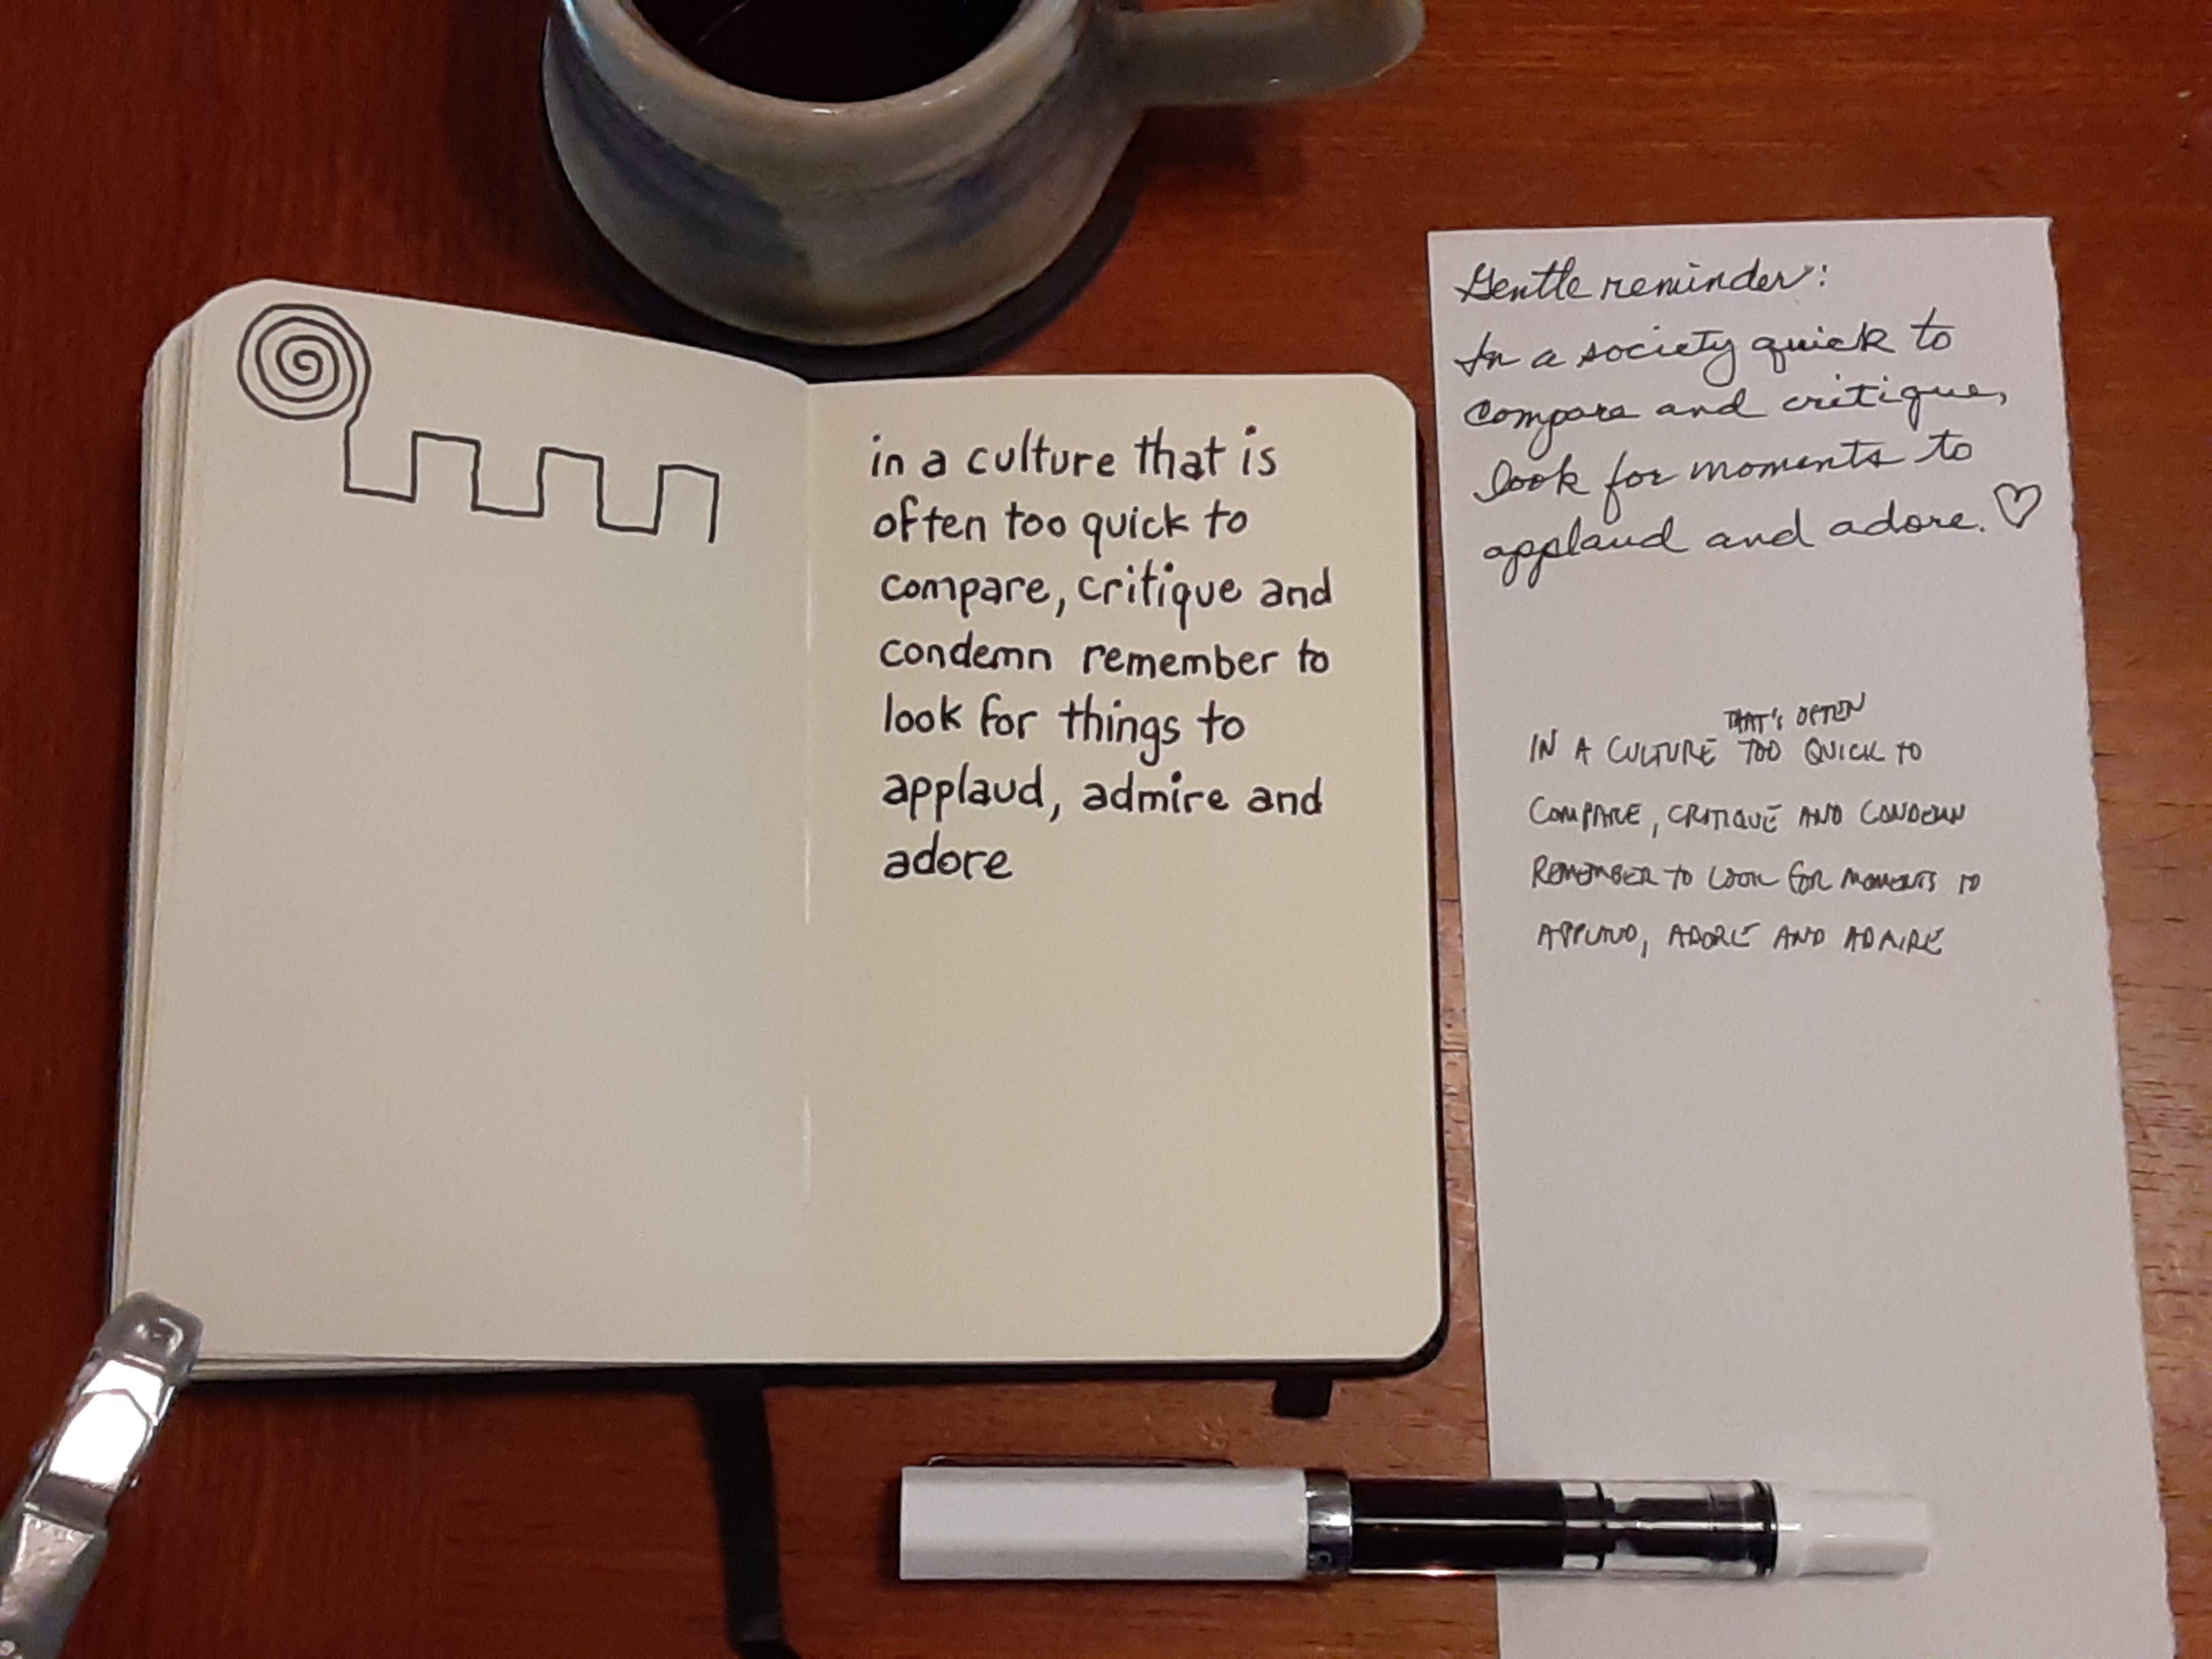 in a culture that is
often too quick to
compare, critique and
condemn remember to
look for things to
applaud, admire and
adore
Gentle reminder:
In a society quick to
compare and critique,
look for moments to
applaud and adore. ♡
THAT'S OFTEN
IN A CULTURE TOO QUICK TO
COMPARE, CRITIQUE AND CONDEMN
REMEMBER TO LOOK FOR MOMENTS TO
APPLAUD, ADORE AND ADMIRE